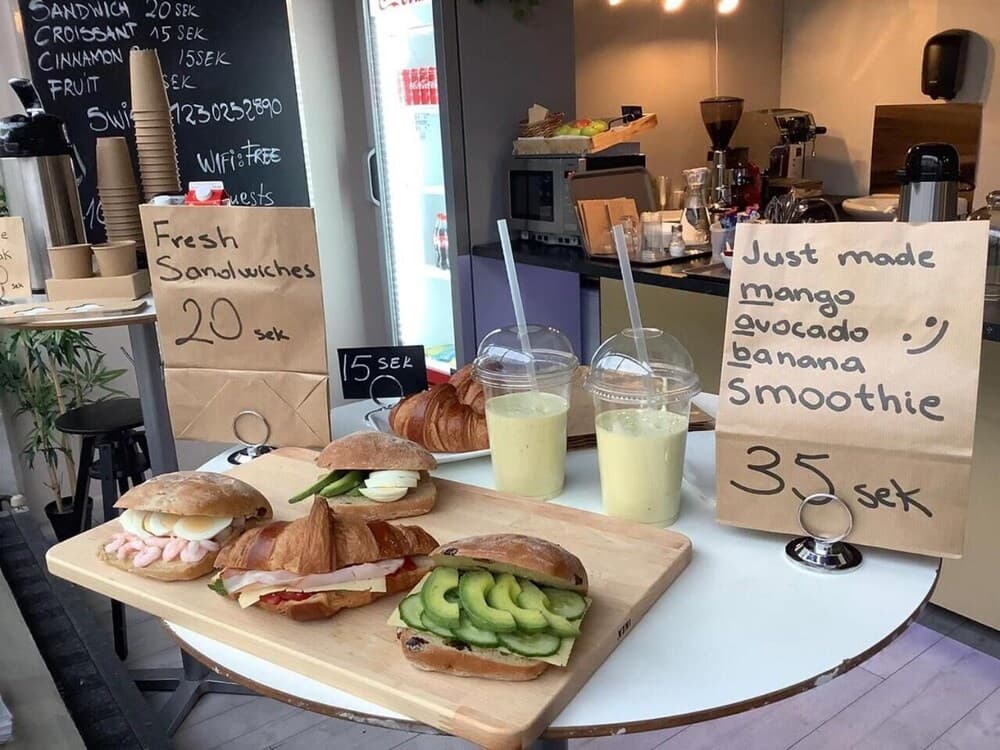 SANDWICH 20 SEK
CROISSANT 15 SEK
CINNAMON 15SEK
FRUIT SEK
1230252890
WIFI: FREE
Fresh
Sandwiches
20 sek
15 SEK
Just made
mango
avocado
banana
smoothie
35 sek